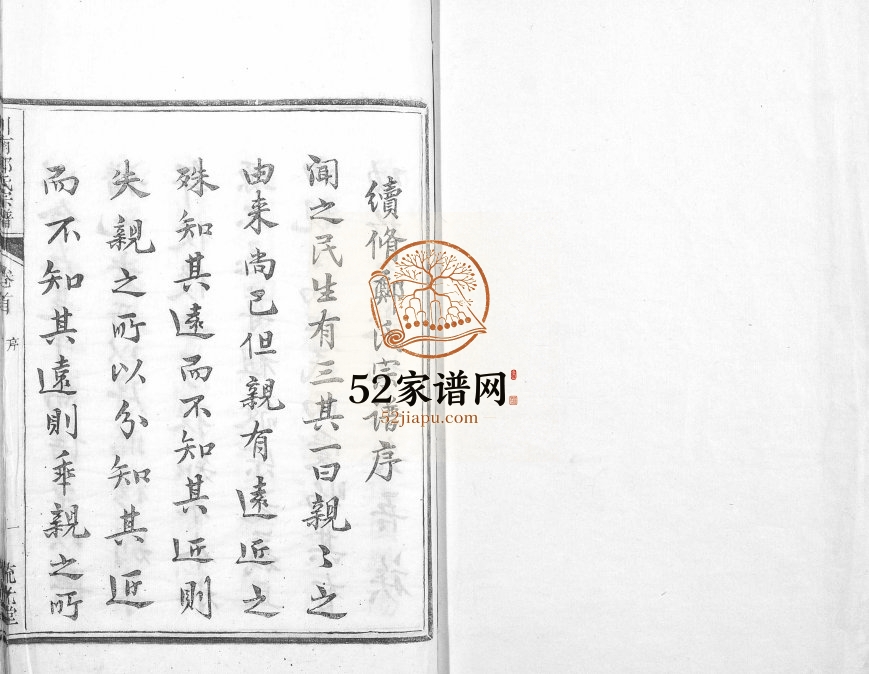 續脩鄭氏宗譜序
聞之民生有三其一曰親〻之
由来尚已但親有遠近之
殊知其遠而不知其近則
失親之所以分知其近
而不知其遠則乖親之所
川南鄭氏宗譜
卷首
序
一
52家谱网
52jiapu.com